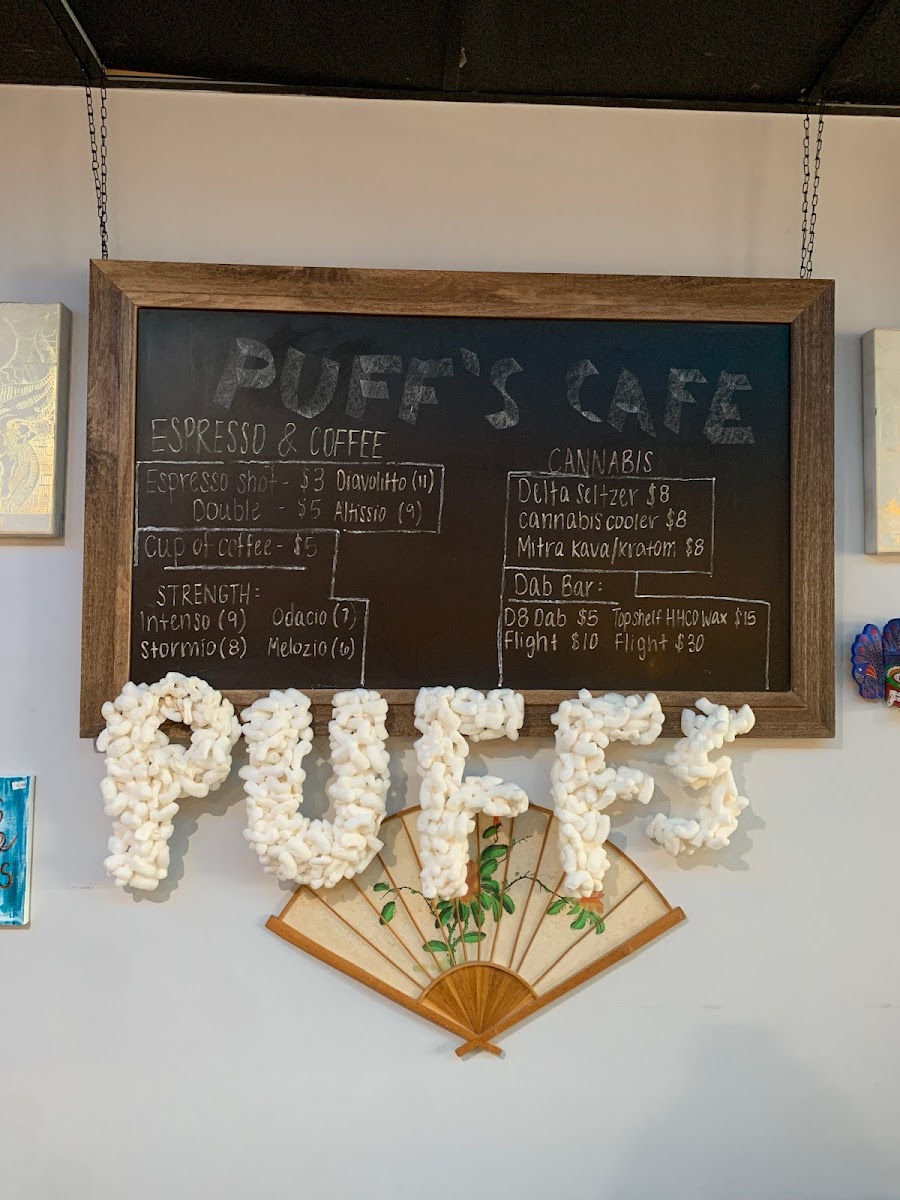 PUFF'S CAFE
ESPRESSO & COFFEE
Espresso shot - $3 Diavolitto (11)
Double - $5 Altissio (9)
Cup of coffee - $5
STRENGTH:
Intenso (9) Odacio (7)
Stormio (8) Melozio (6)
CANNABIS
Delta Seltzer $8
cannabis cooler $8
Mitra Kava/kratom $8
Dab Bar:
D8 Dab $5 Topshelf HHCO Wax $15
Flight $10 Flight $30
PUFFS